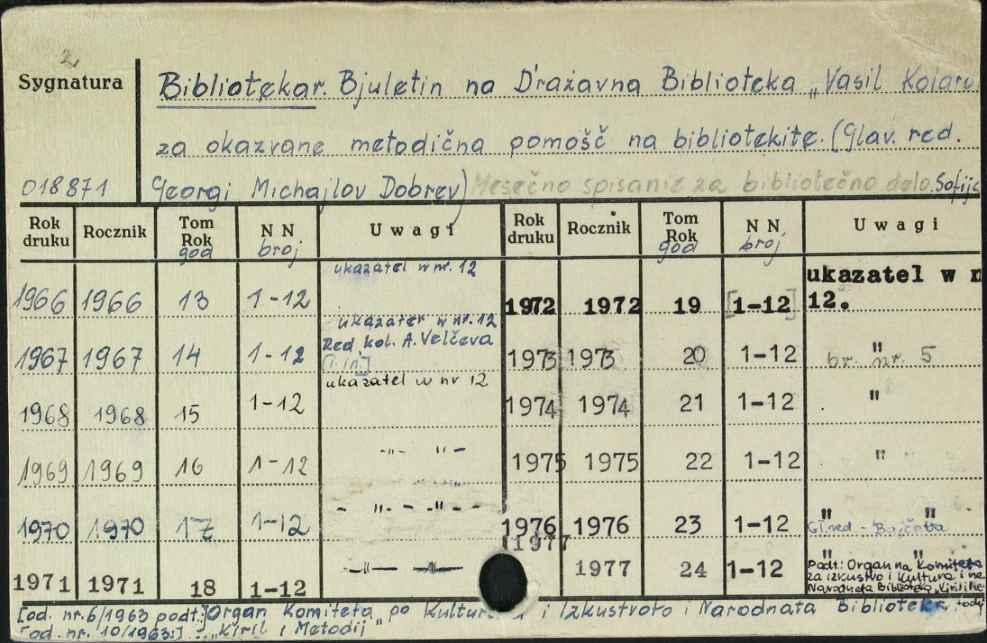 2
Sygnatura
Bibliotekar. Bjuletin na D'ražavna Biblioteka „Vasil Kolarov
za okazvane metodična pomošč na bibliotekite. (Glav. red.
018871
Georgi Michajlov Dobrev) Mesečno spisanie za bibliotečno delo. Sofija
Rok druku Rocznik Tom Rok god N N broj Uwagi Rok druku Rocznik Tom Rok god N N broj Uwagi
1966 1966 13 1-12 ukazatel w nr. 12 1972 1972 19 [1-12] ukazatel w n 12.
1967 1967 14 1-12 ukazatel w nr. 12 Red. kol. A. Velčeva [i in.] 1973 1973 20 1-12 " br. nr. 5
1968 1968 15 1-12 ukazatel w nr 12 1974 1974 21 1-12 "
1969 1969 16 1-12 -"- "- 1975 1975 22 1-12 "
1970 1970 17 1-12 - "- -"- - 1976 1976 23 1-12 " " Gł. red. -
1977
1971 1971 18 1-12 1977 24 1-12 " "
Podt: Organ na Komiteta
za izkustvo i kultura i na
Narodnata Biblioteka „Kiril i Me
[od. nr. 6/1963 podt:] Organ Komiteta po Kultura i Izkustvoto i Narodnata Biblioteka
[od. nr. 10/1963:] „Kiril i Metodij"